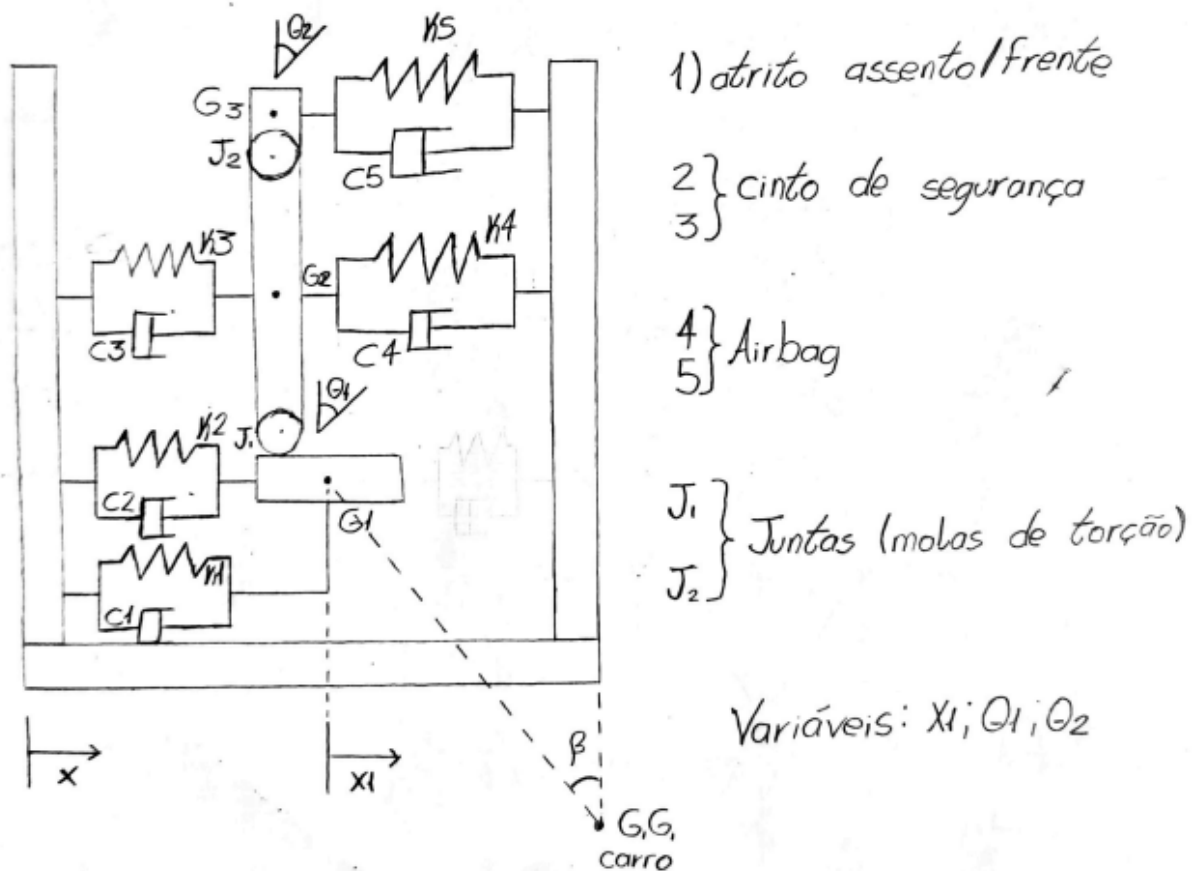 θ2
K5
G3
J2
C5
K3
K4
G2
C3
C4
θ1
K2
J1
C2
G1
K1
C1
x
X1
β
G.G.
carro
1) atrito assento/frente
2
3 } cinto de segurança
4
5 } Airbag
J1
J2 } Juntas (molas de torção)
Variáveis: X1; θ1; θ2